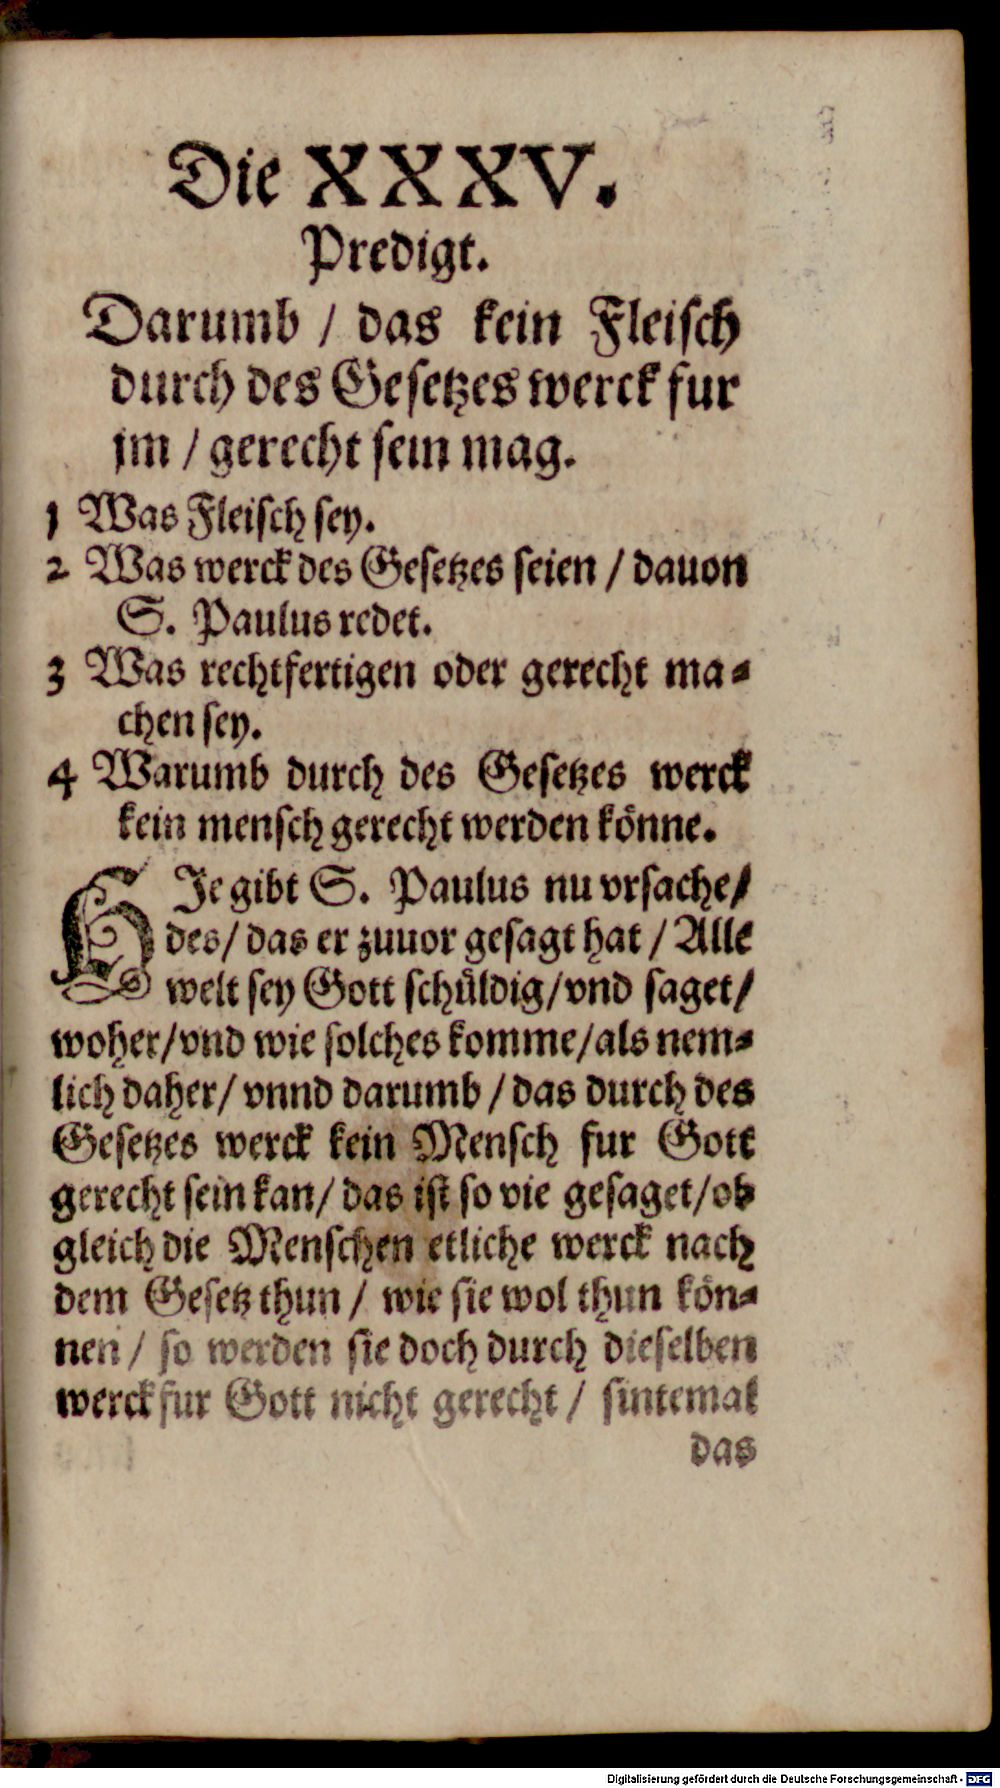 Die XXXV.
Predigt.
Darumb / das kein Fleisch
durch des Gesetzes werck fur
jm / gerecht sein mag.
1 Was Fleisch sey.
2 Was werck des Gesetzes seien / dauon
S. Paulus redet.
3 Was rechtfertigen oder gerecht ma-
chen sey.
4 Warumb durch des Gesetzes werck
kein mensch gerecht werden könne.
HJe gibt S. Paulus nu vrsache/
des/ das er zuuor gesagt hat / Alle
welt sey Gott schüldig/vnd saget/
woher/vnd wie solches komme/als nem-
lich daher/ vnnd darumb / das durch des
Gesetzes werck kein Mensch fur Gott
gerecht sein kan/ das ist so vie gesaget/ob
gleich die Menschen etliche werck nach
dem Gesetz thun / wie sie wol thun kön-
nen / so werden sie doch durch dieselben
werck fur Gott nicht gerecht / sintemal
das
Digitalisierung gefördert durch die Deutsche Forschungsgemeinschaft - DFG